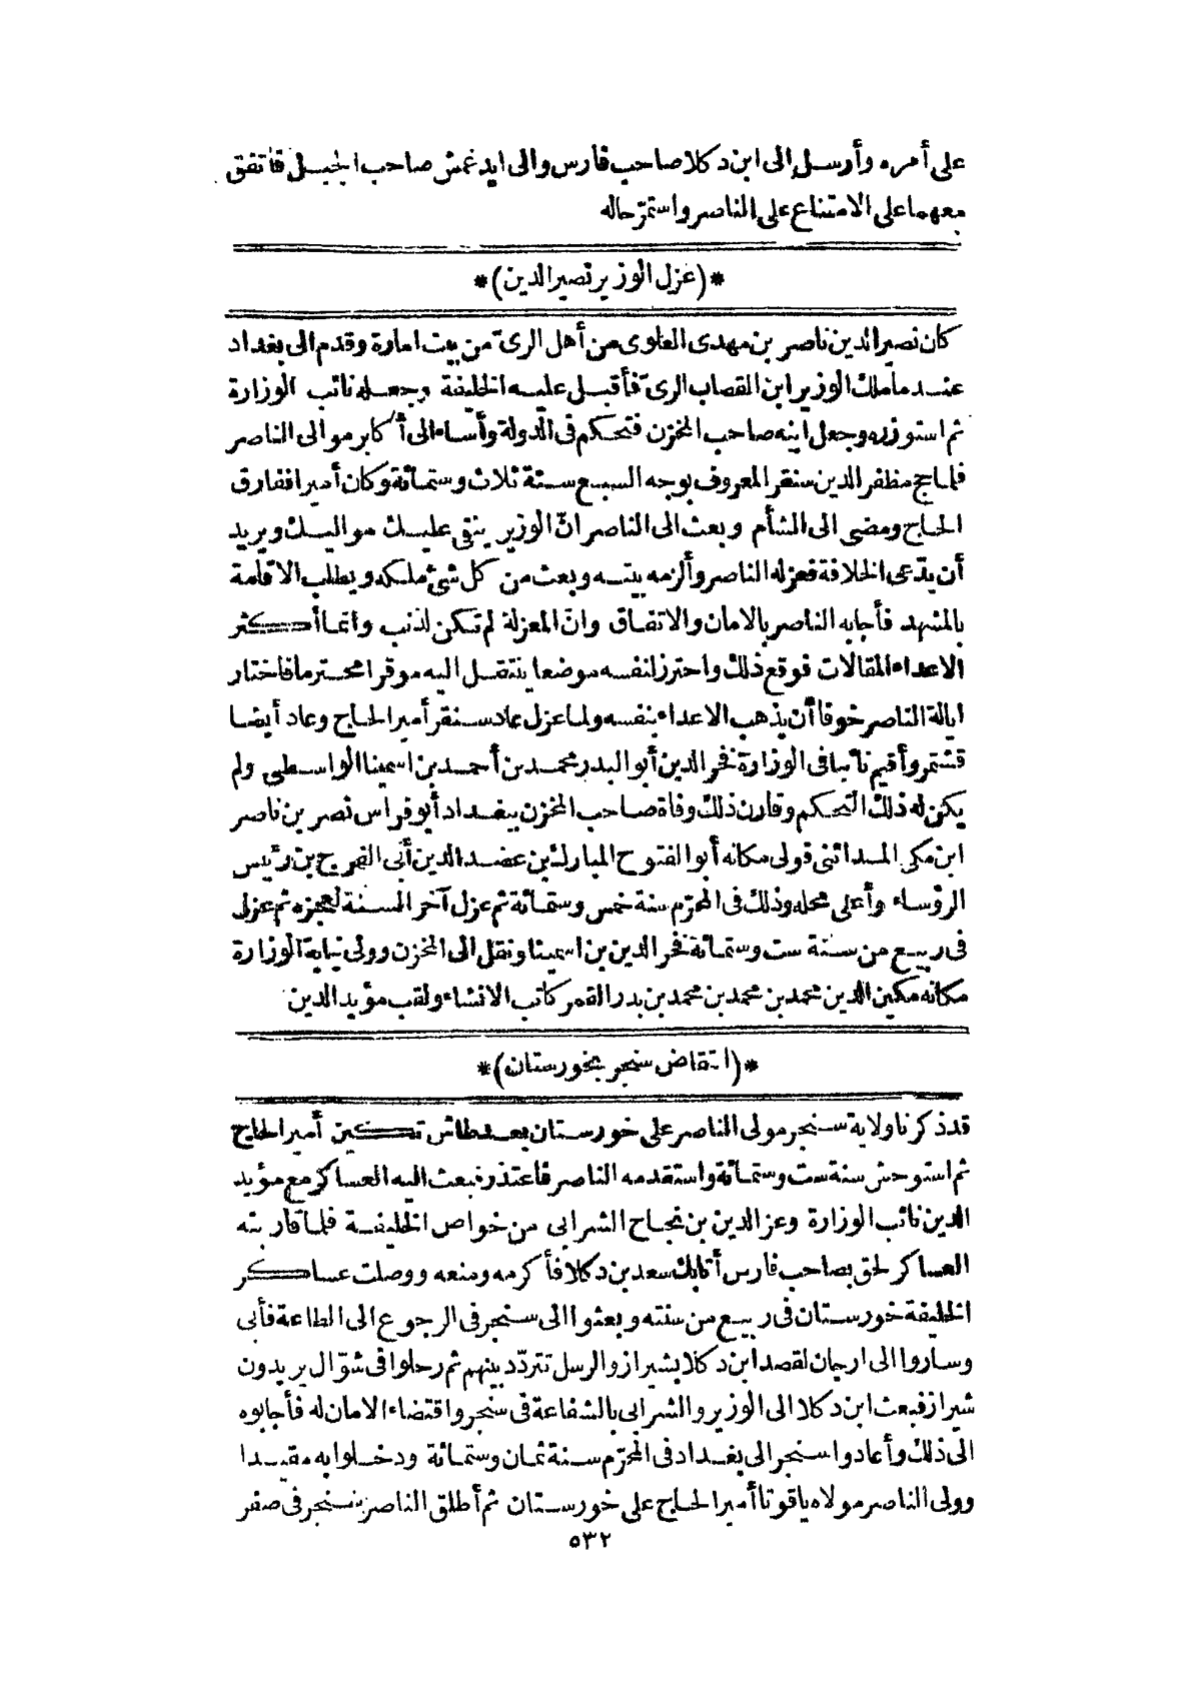 على أمره وأرسل الى ابن دكلا صاحب فارس والى ايدغمش صاحب الجبل فاتفق
معهما على الامتناع على الناصر واستمرّ حاله
*(عزل الوزير نصير الدين)*
كان نصير الدين ناصر بن مهدى العلوى من أهل الرىّ من بيت امارة وقدم الى بغداد
عند ما ملك الوزير ابن القصاب الرىّ فأقبل عليه الخليفة وجعله نائب الوزارة
ثم استوزره وجعل ابنه صاحب المخزن فتحكم فى الدولة وأساء الى أكابر موالى الناصر
فلما حج مظفر الدين سنقر المعروف بوجه السبع سنة ثلاث وستمائة وكان أميرا ففارق
الحاج ومضى الى الشأم وبعث الى الناصر انّ الوزير ينقى عليك مواليك ويريد
أن يدّعى الخلافة فعزله الناصر وألزمه بيته وبعث من كل شئ ملكه ويطلب الاقامة
بالمشهد فأجابه الناصر بالامان والاتفاق وانّ المعزلة لم تكن لذنب وانما أكثر
الاعداء المقالات فوقع ذلك واحترز لنفسه موضعا ينتقل اليه موقرا محترما فاختار
ايالة الناصر خوفا أن يذهب الاعداء بنفسه ولما عزل عاد سنقر أمير الحاج وعاد أيضا
قشتمر وأقيم نائبا فى الوزارة فخر الدين أبو البدر محمد بن أحمد بن اسمينا الواسطى ولم
يكن له ذلك التحكم وقارن ذلك وفاة صاحب المخزن ببغداد أبو فراس نصر بن ناصر
ابن مكى المدائنى فولى مكانه أبو الفتوح المبارك بن عضد الدين أبى الفرج بن رئيس
الرؤساء وأعلى محله وذلك فى المحرّم سنة خمس وستمائة ثم عزل آخر السنة لعجزه ثم عزل
فى ربيع من سنة ست وستمائة فخر الدين بن اسمينا ونقل الى المخزن وولى نيابة الوزارة
مكانه مكين الدين محمد بن محمد بن محمد بن بدر القمر كاتب الانشاء ولقب مؤيد الدين
*(انتقاض سنجر بخورستان)*
قد ذكرنا ولاية سنجر مولى الناصر على خورستان بعد طاش تكين أمير الحاج
ثم استوحش سنة ست وستمائة واستقدمه الناصر فاعتذر فبعث اليه العساكر مع مؤيد
الدين نائب الوزارة وعز الدين بن نجاح الشرابى من خواص الخليفة فلما قاربته
العساكر لحق بصاحب فارس أتابك سعد بن دكلا فأكرمه ومنعه ووصلت عساكر
الخليفة خورستان فى ربيع من سنته وبعثوا الى سنجر فى الرجوع الى الطاعة فأبى
وساروا الى ارجان لقصد ابن دكلا بشيراز والرسل تتردّد بينهم ثم رحلوا فى شوّال يريدون
شيراز فبعث ابن دكلا الى الوزير والشرابى بالشفاعة فى سنجر واقتضاء الامان له فأجابوه
الى ذلك وأعادوا سنجر الى بغداد فى المحرّم سنة ثمان وستمائة ودخلوا به مقيدا
وولى الناصر مولاه ياقوتا أمير الحاج على خورستان ثم أطلق الناصر سنجر فى صفر
٥٣٢